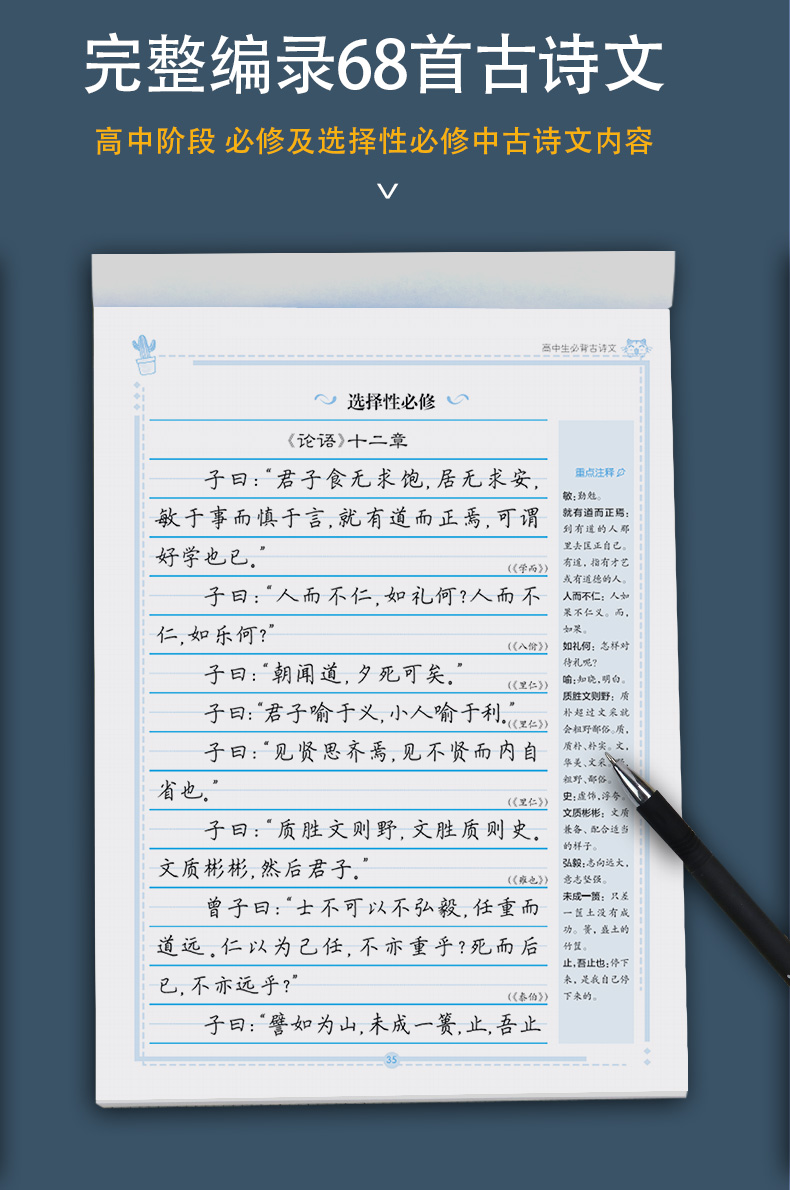 完整编录68首古诗文
高中阶段 必修及选择性必修中古诗文内容
高中生必背古诗文
选择性必修
《论语》十二章
子曰:“君子食无求饱,居无求安,
敏于事而慎于言,就有道而正焉,可谓
好学也已。”
(《学而》)
子曰:“人而不仁,如礼何?人而不
仁,如乐何?”
(《八佾》)
子曰:“朝闻道,夕死可矣。”
(《里仁》)
子曰:“君子喻于义,小人喻于利。”
(《里仁》)
子曰:“见贤思齐焉,见不贤而内自
省也。”
(《里仁》)
子曰:“质胜文则野,文胜质则史。
文质彬彬,然后君子。”
(《雍也》)
曾子曰:“士不可以不弘毅,任重而
道远。仁以为己任,不亦重乎?死而后
已,不亦远乎?”
(《泰伯》)
子曰:“譬如为山,未成一篑,止,吾止
重点注释
敏:勤勉。
就有道而正焉:
到有道的人那
里去匡正自己。
有道,指有才艺
或有道德的人。
人而不仁:人如
果不仁义。而,
如果。
如礼何:怎样对
待礼呢?
喻:知晓,明白。
质胜文则野:质
朴超过文采就
会粗野鄙俗。质,
质朴、朴实。文,
华美、文采。
粗野、鄙俗。
史:虚饰,浮夸。
文质彬彬:文质
兼备、配合适当
的样子。
弘毅:志向远大,
意志坚强。
未成一篑:只差
一筐土没有成
功。篑,盛土的
竹筐。
止,吾止也:停下
来,是我自己停
下来的。
35